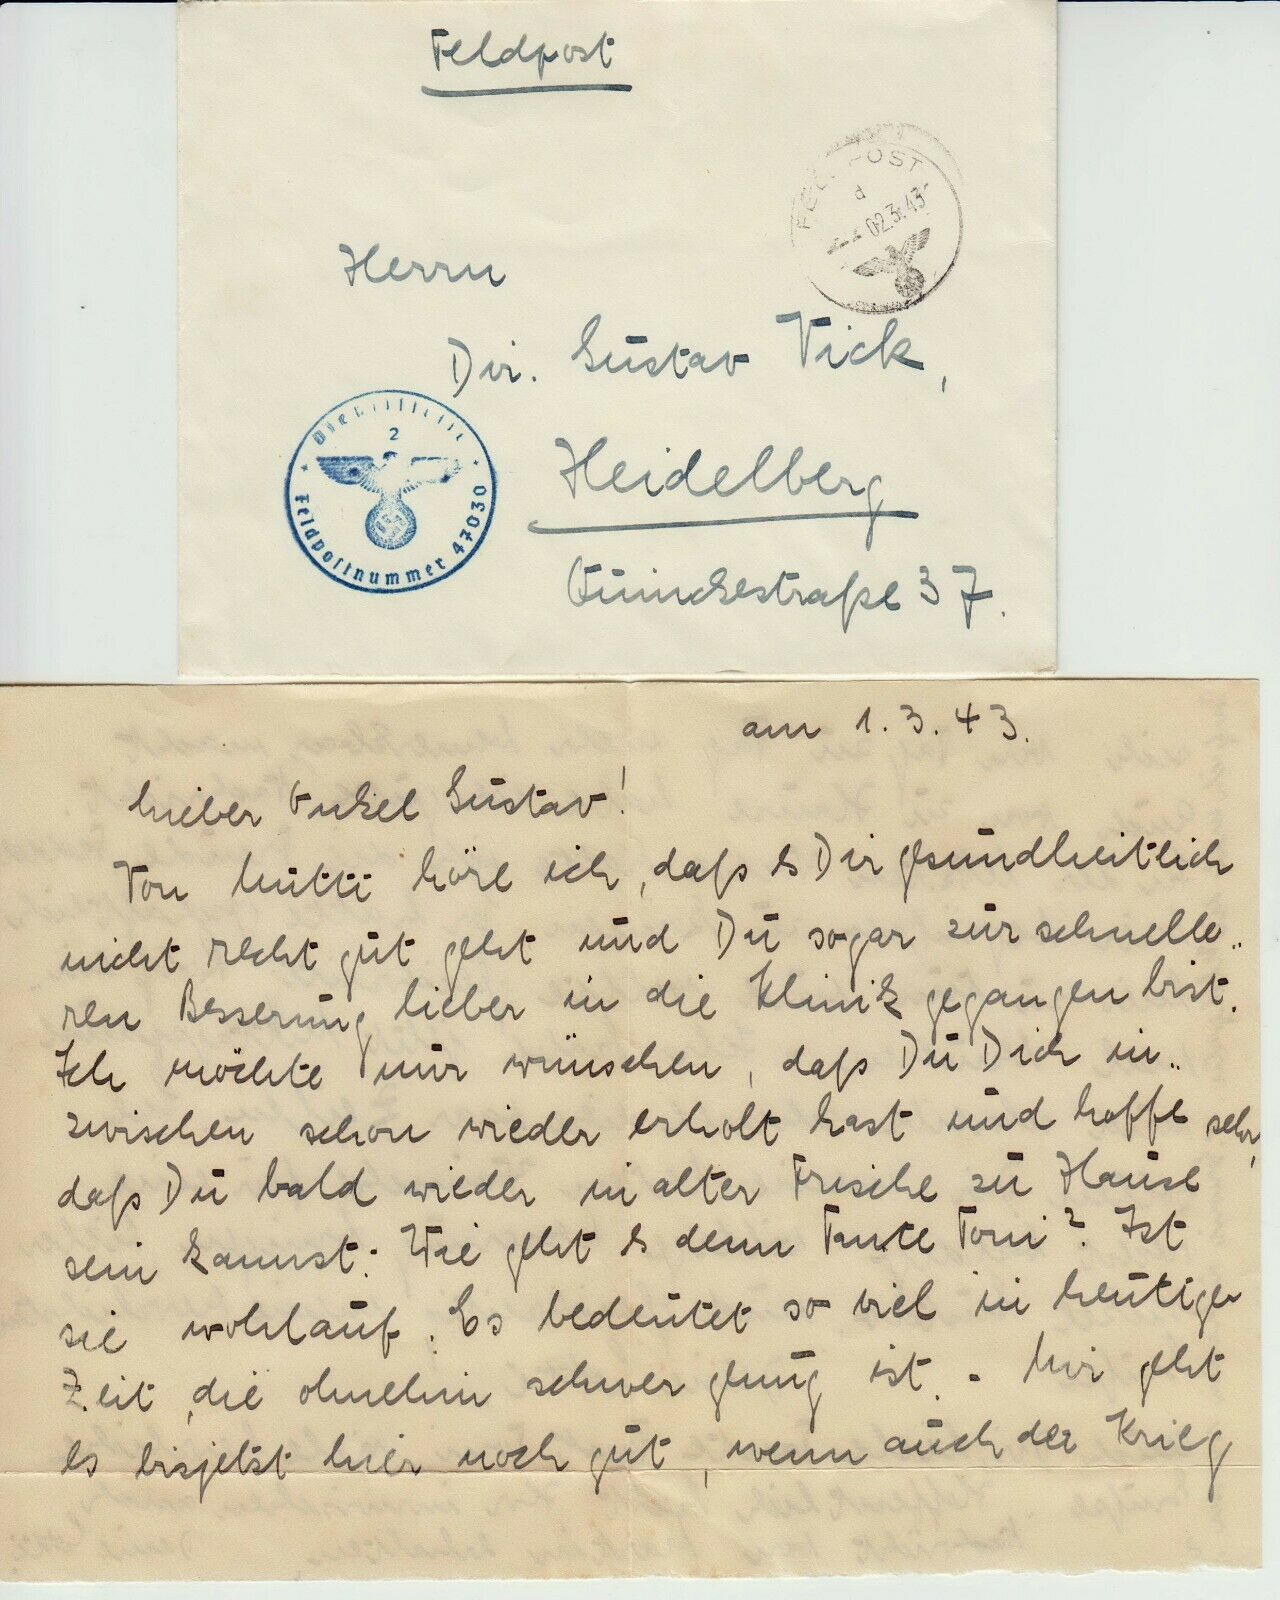 Feldpost
FELDPOST
d
02.3.43
Herrn
Dir. Gustav Vick,
Heidelberg
straße 37.
Dienststelle
2
Feldpostnummer 47030
am 1.3.43.
Lieber Onkel Gustav!
Von Mutti höre ich, daß es Dir gesundheitlich
nicht recht gut geht und Du sogar zur schnelle-
ren Besserung lieber in die Klinik gegangen bist.
Ich möchte nur wünschen, daß Du Dich in-
zwischen schon wieder erholt hast und hoffe sehr,
daß Du bald wieder in alter Frische zu Hause
sein kannst. Wie geht es denn Tante Toni? Ist
sie wohlauf. Es bedeutet so viel in heutiger
Zeit, die ohnehin schwer genug ist. - Mir geht
es bisjetzt hier noch gut, wenn auch der Krieg